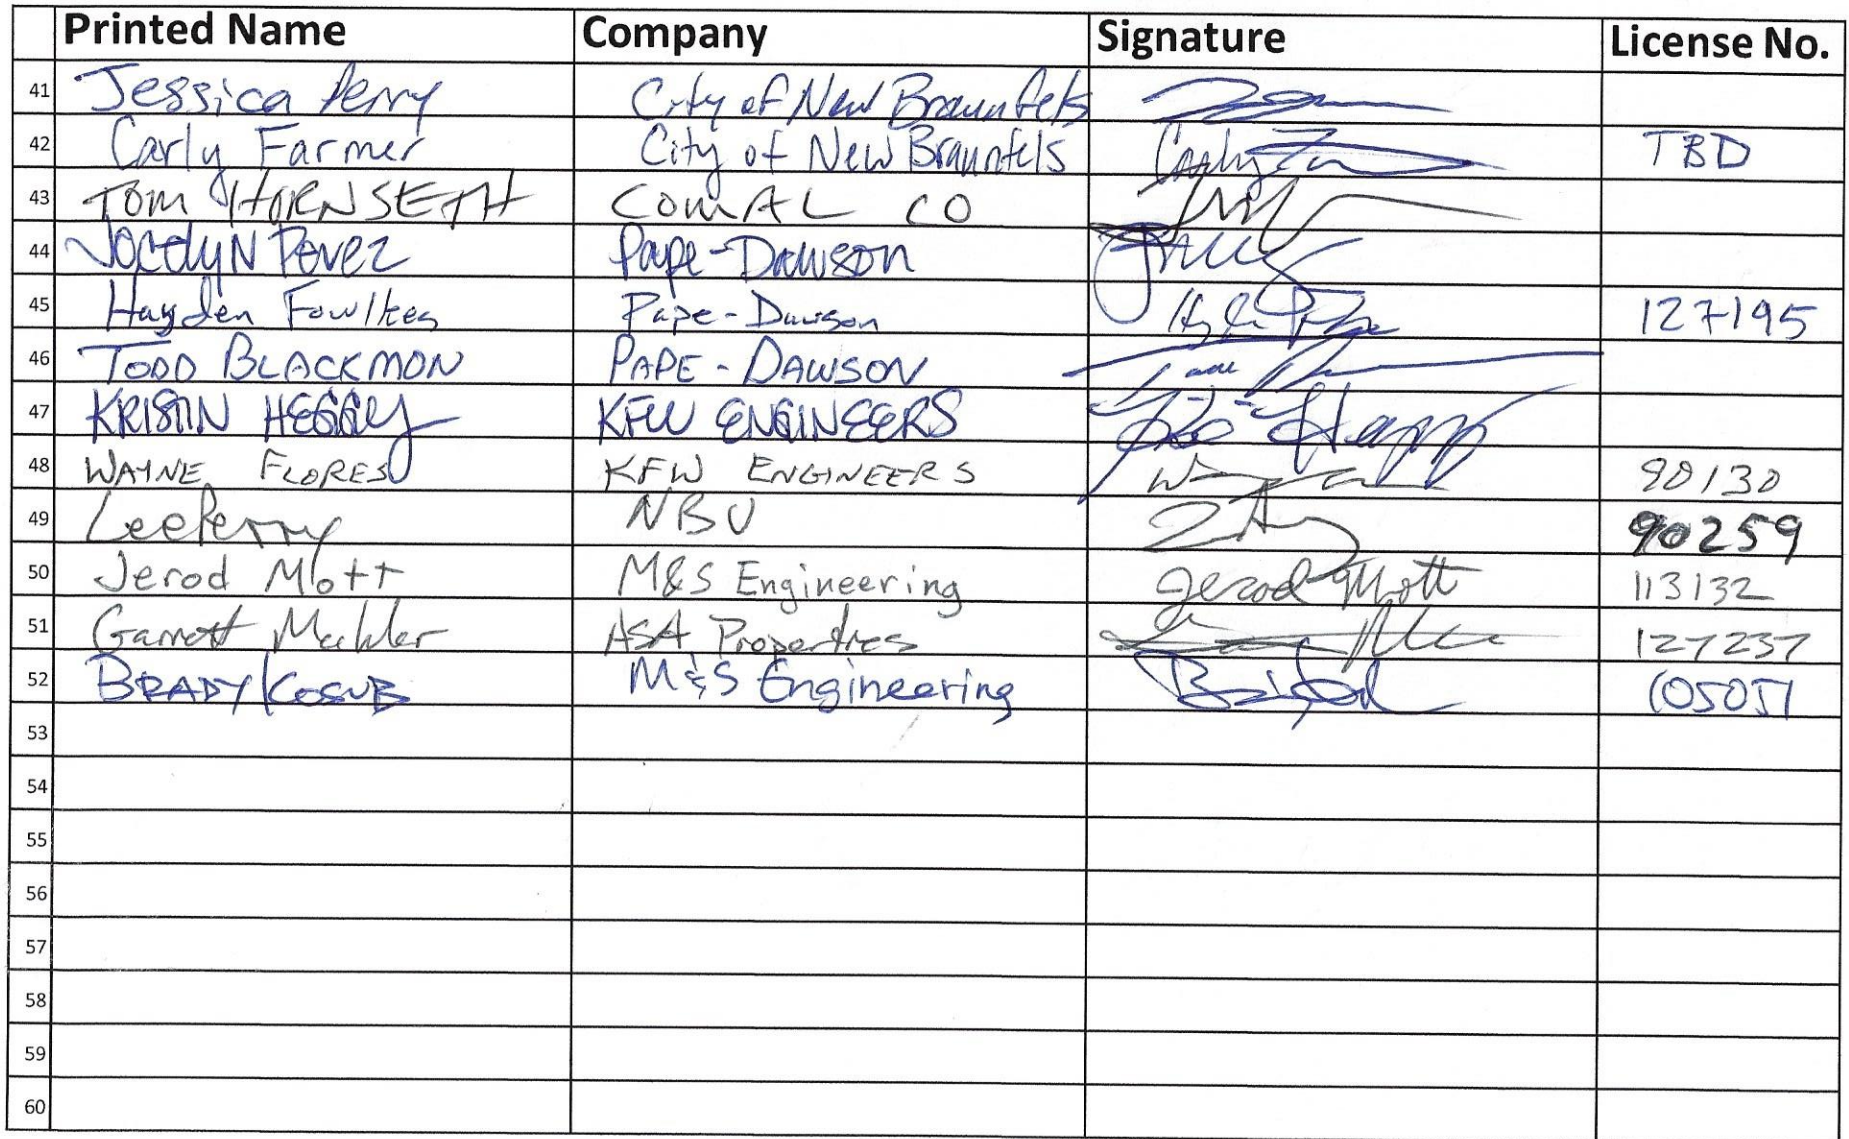 Printed Name Company Signature License No.
41 Jessica Perry City of New Braunfels
42 Carly Farmer City of New Braunfels TBD
43 TOM HORNSETH COMAL CO
44 Jocelyn Perez Pape-Dawson
45 Hayden Fowlkes Pape-Dawson 127195
46 TODD BLACKMON PAPE-DAWSON
47 KRISTIN HEGGY KFW ENGINEERS
48 WAYNE FLORES KFW ENGINEERS 90130
49 Lee Perry NBU 90259
50 Jerod Mott M&S Engineering Jerod Mott 113132
51 Garrett ASA Properties 127237
52 BRADY KOSUB M&S Engineering 105051
53
54
55
56
57
58
59
60